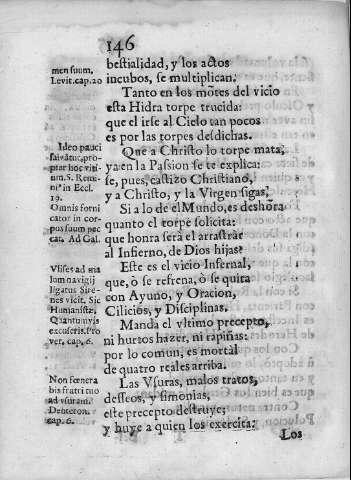 146
bestialidad, y los actos
incubos, se multiplican.
Tanto en los motes del vicio
esta Hidra torpe trucida:
que el irse al Cielo tan pocos
es por las torpes desdichas.
Que a Christo lo torpe mata,
ya en la Passion se te explica:
se, pues, castizo Christiano,
y a Christo, y la Virgen sigas,
Si a lo de el Mundo, es deshõra
quanto el torpe solicita:
que honra serà el arrastrar
al Infierno, de Dios hijas?
Este es el vicio Infernal,
que, ò se refrena, ò se quita
con Ayuno, y Oracion,
Cilicios, y Disciplinas.
Manda el vltimo precepto,
ni hurtos hazer, ni rapiñas:
por lo comun, es mortal
de quatro reales arriba.
Las Vsuras, malos tratos,
desseos, y simonias,
este precepto destruye;
y huye a quien los exercita:
Los
men suum,
Levit. cap. 20
Ideo pauci
salvãtur, pro-
ptar hoc viti-
um. S. Remi-
niº in Eccl.
19.
Omnis forni
cator in cor-
pus suum pec
cat. Ad Gal.
Vlises ad ma
lum navigij
ligatus Sire-
nes vicit, Sic
Humanistæ.
Quantumvis
excuseris. Pro
ver. cap. 6.
Non fœnera
bis fratri tuo
ad vsuram.
Deuteron.
cap. 6.